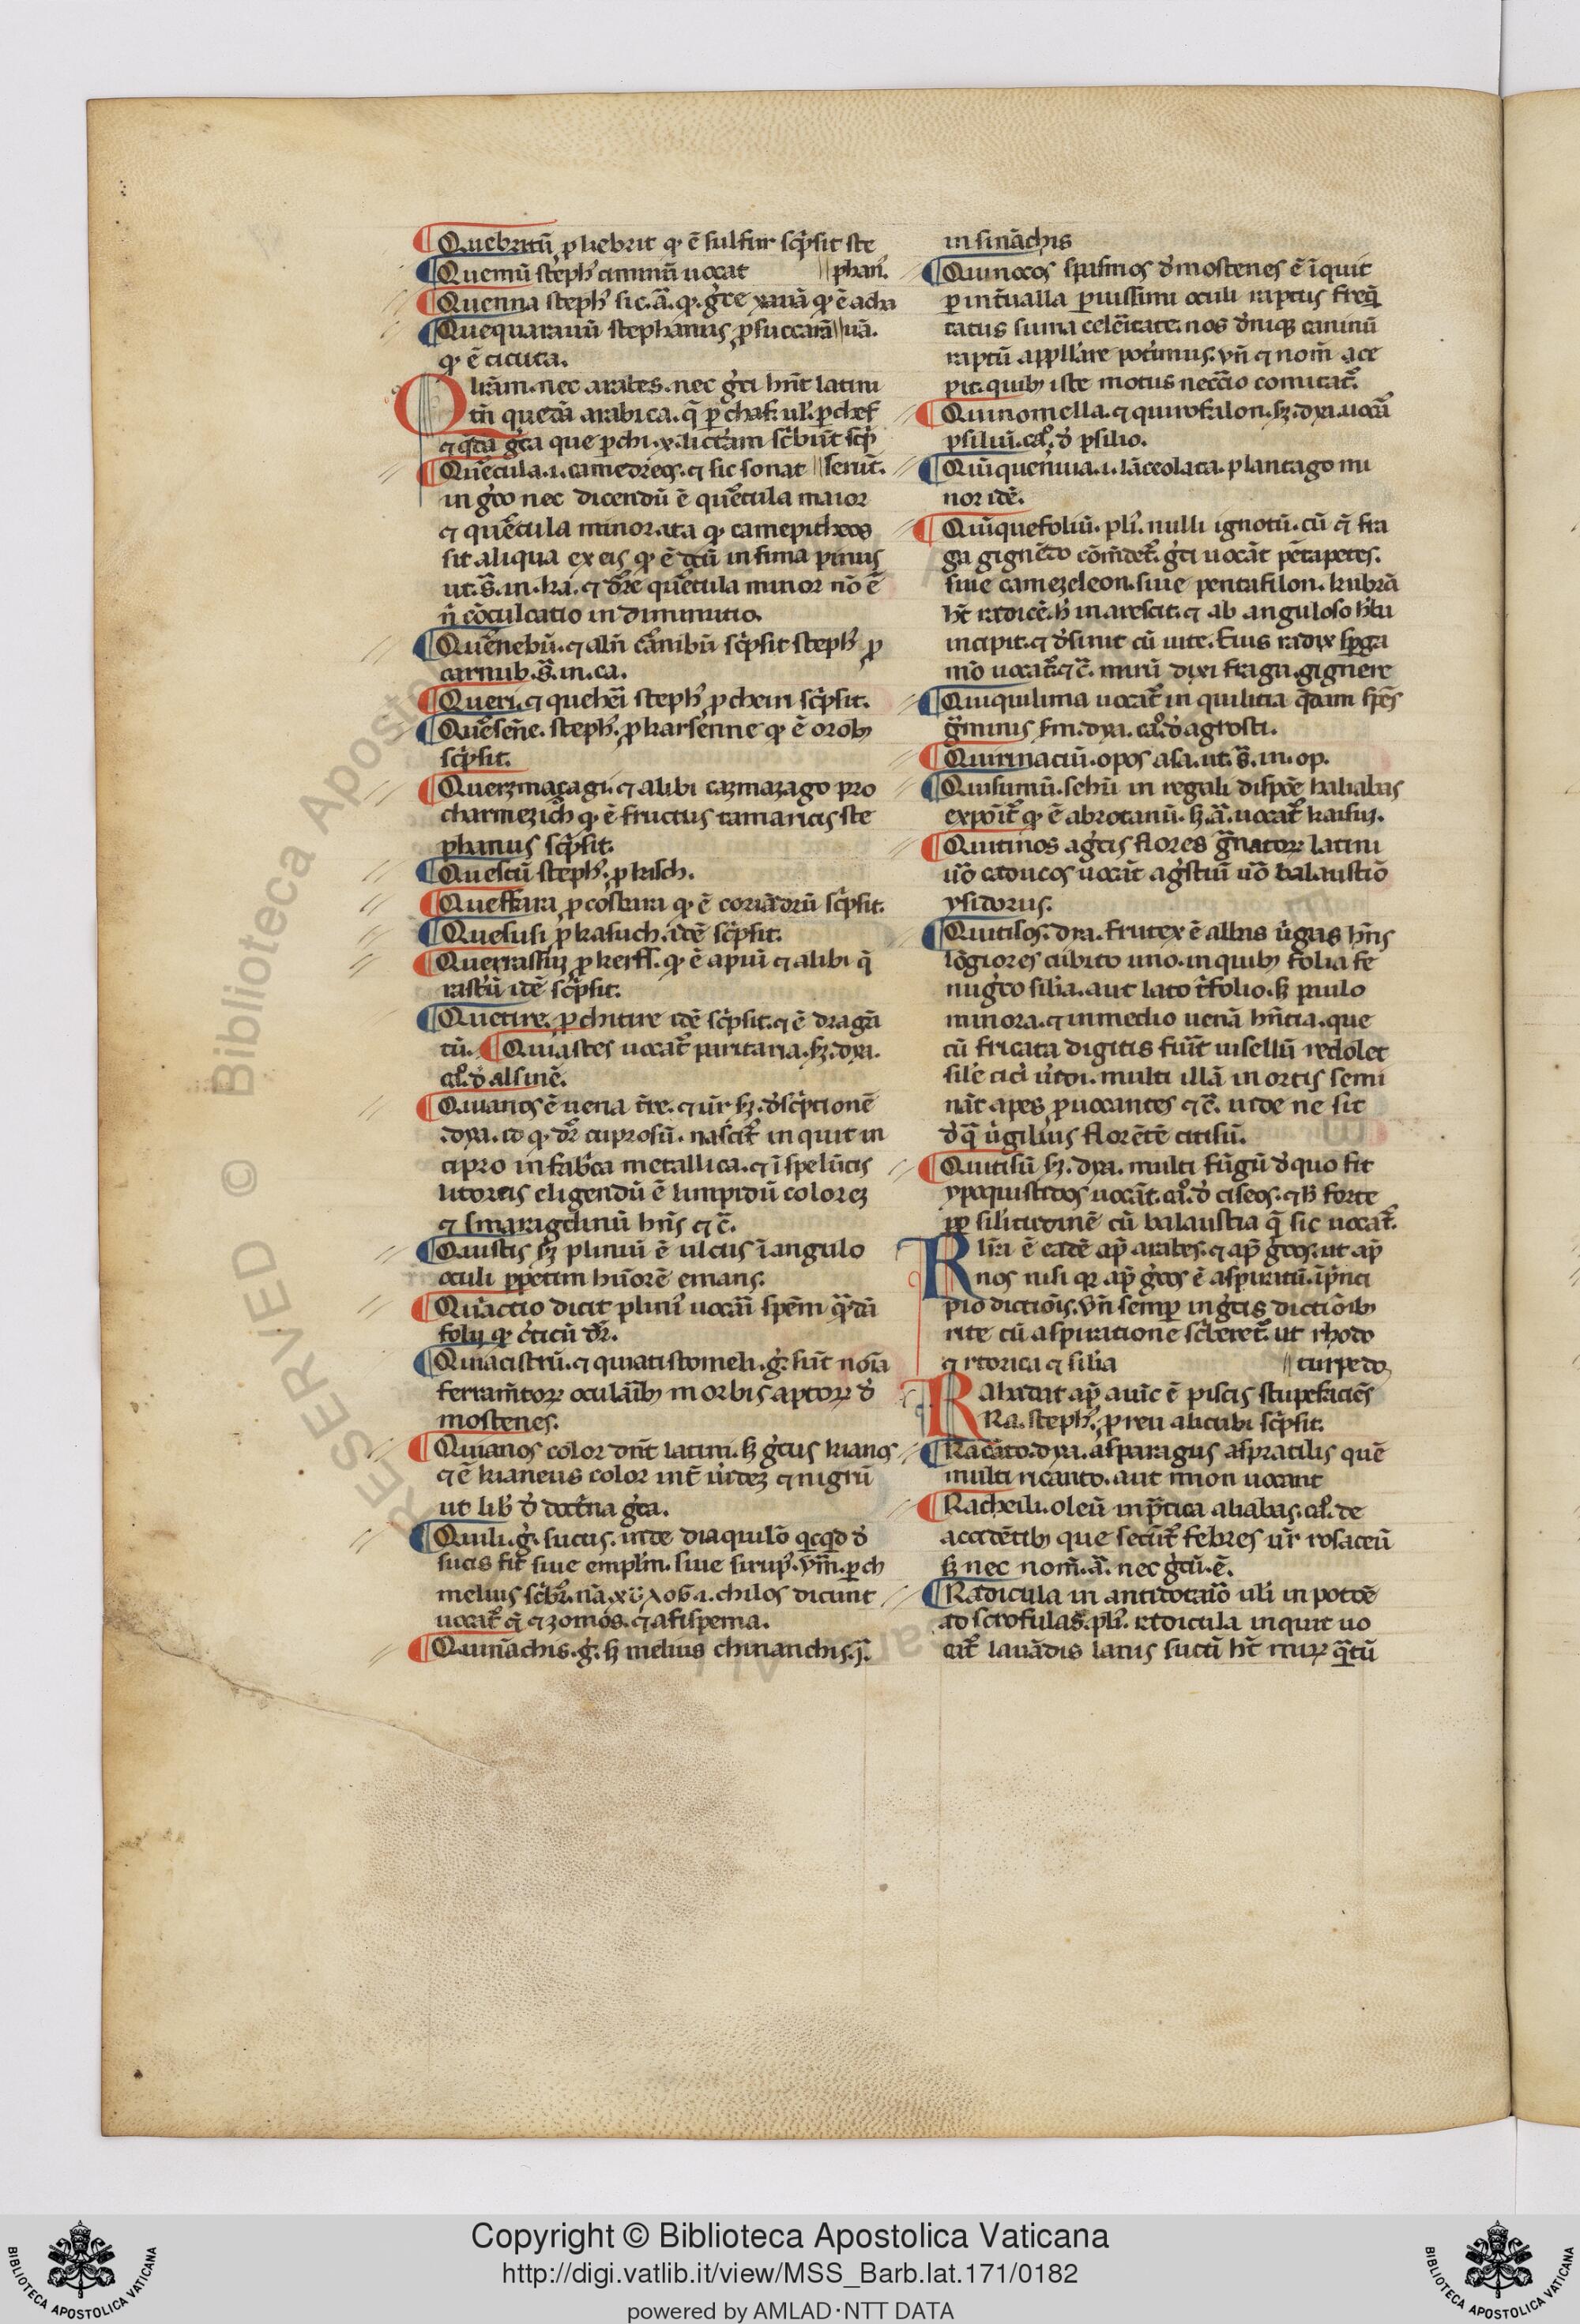 Quebritū ꝓ kebrit qꝰ ē sulfur sc̄psit ste
Quemū steph̾ ciminū uocat ‖phan᷒.
Quenna steph̾ sic. a᷒. qꝰ. gͥce xauā qꝰ ē acha
Quequarauū stephanus ꝓ succarā ‖uā.
qꝰ ē cicuta.
Q lr̄am. nec arabes. nec gͥci hn̄t latini
tn̄ quedā arabica. q̄ ꝑ chaf. ul̾. ꝑ chef
⁊ q̄dā gͥca que ꝑ chi. x. litt̄am sc̄būt sc̄p
Querͨula .i. camedreos. ⁊ sic sonat ‖serūt.
in gͥco nec dicendū ē querͨula maior
⁊ querͨula minor. ita qꝰ camepitheos
sit aliqua ex eis qꝰ ē dcū infima pinus
ut. s̄. in. ka. ⁊ dr̄e querͨula minor nō ē
n̄ cōculcatio in diminutio.
Quenebū. ⁊ alr̄ carnibū sc̄psit steph̾ ꝓ
carnub. s̄. in. ca.
Queri. ⁊ quehei steph̾ ꝓ cheiri sc̄psit.
Quersēne. steph̾. ꝓ karsenne qꝰ ē orobꝫ
sc̄psit.
Querzmaçagi. ⁊ alibi cazmazago pro
charmezich qꝰ ē fructus tamaricis ste
phanus sc̄psit.
Quescū steph̾. ꝓ kusch.
Quessara ꝓ cosbara qꝰ ē coriādrū sc̄psit.
Quesusi ꝓ kasuch. idē sc̄psit.
Querrassiꝫ ꝓ kerff. qꝰ ē apiū ⁊ alibi q̄
rasciū idē sc̄psit.
Quetire. ꝓ chitire idē sc̄psit. ⁊ ē dragā
tū. Quiastes uocat᷒ paritaria. ẜꝫ. dya.
ca̾. d̾ alsine.
Quianos ē uena t̄re. ⁊ ur̄ ẜꝫ. d̾sc̄ptionē
.dya. id qꝰ. dr̄ cuprosū. nascit᷒ inquit in
cipro in fabͥca metallica. ⁊ ī spelūcis
litoreis eligendū ē limpidū colorez
⁊ smaragdinū hn̄s ⁊ c̄.
Quistis ẜꝫ pliniū ē ulcus ī angulo
oculi ꝑpetim hūorē emans.
Quiactio dicit plini̾ uocari spēm q̄dā
folij qꝰ ct̄icū dr̄.
Quiacistrū. ⁊ quiatistomeli. gͥ. sūt noīa
ferram̄torꝝ oculāibꝫ morbis aptorꝝ d̾
mostenes.
Quianos color dn̄t latini. ẜꝫ gͥcus kianos
⁊ ē kianeus color int̄ uͥdez ⁊ nigrū
ut lib̾ d̾ doctͥna gͥca.
Quili. gͥ. sucus. inde diaquilō qͥcqͥd d̾
sucis fit siue emplm̄. siue sirup̾. vn̄. ꝑ ch
melius sc̄br. nā. χυλος .i. chilos dicunt
uocat᷒ q̄ ⁊ zomos. ⁊ afispema.
Quināchis. gͥ. ẜꝫ melius chinanchis. j᷒.
in sināchis
Quinocos spasmos d̾mostenes ē īquit
ꝑ int̄ualla ꝑuissimi oculi raptus freq̄
tatus suma celeritate. nos d̾niqꝫ caninū
raptū appllare potimus. vn̄ ⁊ nom̄ ace
pit. quibꝫ iste motus necc̄io comitat᷒.
Quinomella. ⁊ quirofalon. ẜꝫ. dya. uocā
psiliū. ca̾. d̾ psilio.
Quīquen̄uia. i. lāceolata. plantago mi
nor idē.
Quīquefoliū. pli̾. nulli ignotū. cū q̄ fra
ga gignēdo cōm̄det᷒. gͥci uocāt pētapetes.
siue camezeleon. siue pentafilon. kubrā
ht̄ radicē. h̾ inarescit. ⁊ ab anguloso hītu
incipit. ⁊ d̾sinit cū uite. Eius radix spga
mō uocat᷒. ⁊ c̄. mirū dixi fraga. gignere
Quiquilima uocat᷒ in quilicia q̄dam spēs
gͣminis sm̄. dya. ca̾. d̾ agrosti.
Quirinaciū. opos asa. ut. s̄. in. op.
Quisumū. sehū in regali dispōe haliabas
expōit᷒ qꝰ ē abrotanū. ẜꝫ. a᷒. uocat᷒ kaisuꝫ.
Quitinos agͥcis flores gͣnatorꝝ latini
ūo caducos uocāt agͥstiū ūo balaustiō
ysidorus.
Quitisos. dya. frutex ē albas ūgas hn̄s
lōgiores cubito uno. in quibꝫ folia fe
nugͥco silia. aut lato t̄folio. ẜꝫ paulo
minora. ⁊ in medio uenā hn̄tia. que
cū fricata digitis fūit uisellū redolet
sile cici uͥdi. multi illā in ortis semi
nāt apes ꝓuocantes ⁊ c̄. unde ne sit
d̾ q̄ uͥgilius florētē citisū.
Quitisū ẜꝫ. dya. multi fūgū d̾ quo fit
ypoquistidos uocāt. ca̾. d̾ ciseos. ⁊ h̾ forte
ꝓpͭ siliͭudinē cū balaustia q̄ sic uocat᷒.
R lr̄a ē eadē ap̄ arabes. ⁊ ap̄ gͥcos. ut ap̄
nos nisi qꝛ ap̄ gͥcos ē aspiratū. īpͥnci
pio dictiōis. vn̄ semꝑ in gͥcis dictiōibꝫ
rite cū aspiratione sc̄beret᷒. ut rhodo
⁊ rtorica ⁊ silia ‖turpedo
R Ahadat ap̄ auic̄ ē piscis stupefaciēs
Ra. steph̾. ꝓ reu alicubi sc̄psit.
Racāto. dya. asparagus aspratilis quē
multi ricanto. aut mion uocant
Racheili. oleū in pͣtica aliabas. ca̾. de
accidētibꝫ que secūt᷒ febres ur̄ rosaceū
ẜꝫ nec nom̄. a᷒. nec gͥcū. ē.
Radicula in antidotario uli̾ in potōe
ad scrofulas. pli̾. radicula inquit uo
cat᷒ lauādis lanis sucū ht̄ mirꝝ q̄tū
Copyright © Biblioteca Apostolica Vaticana
http://digi.vatlib.it/view/MSS_Barb.lat.171/0182
powered by AMLAD·NTT DATA